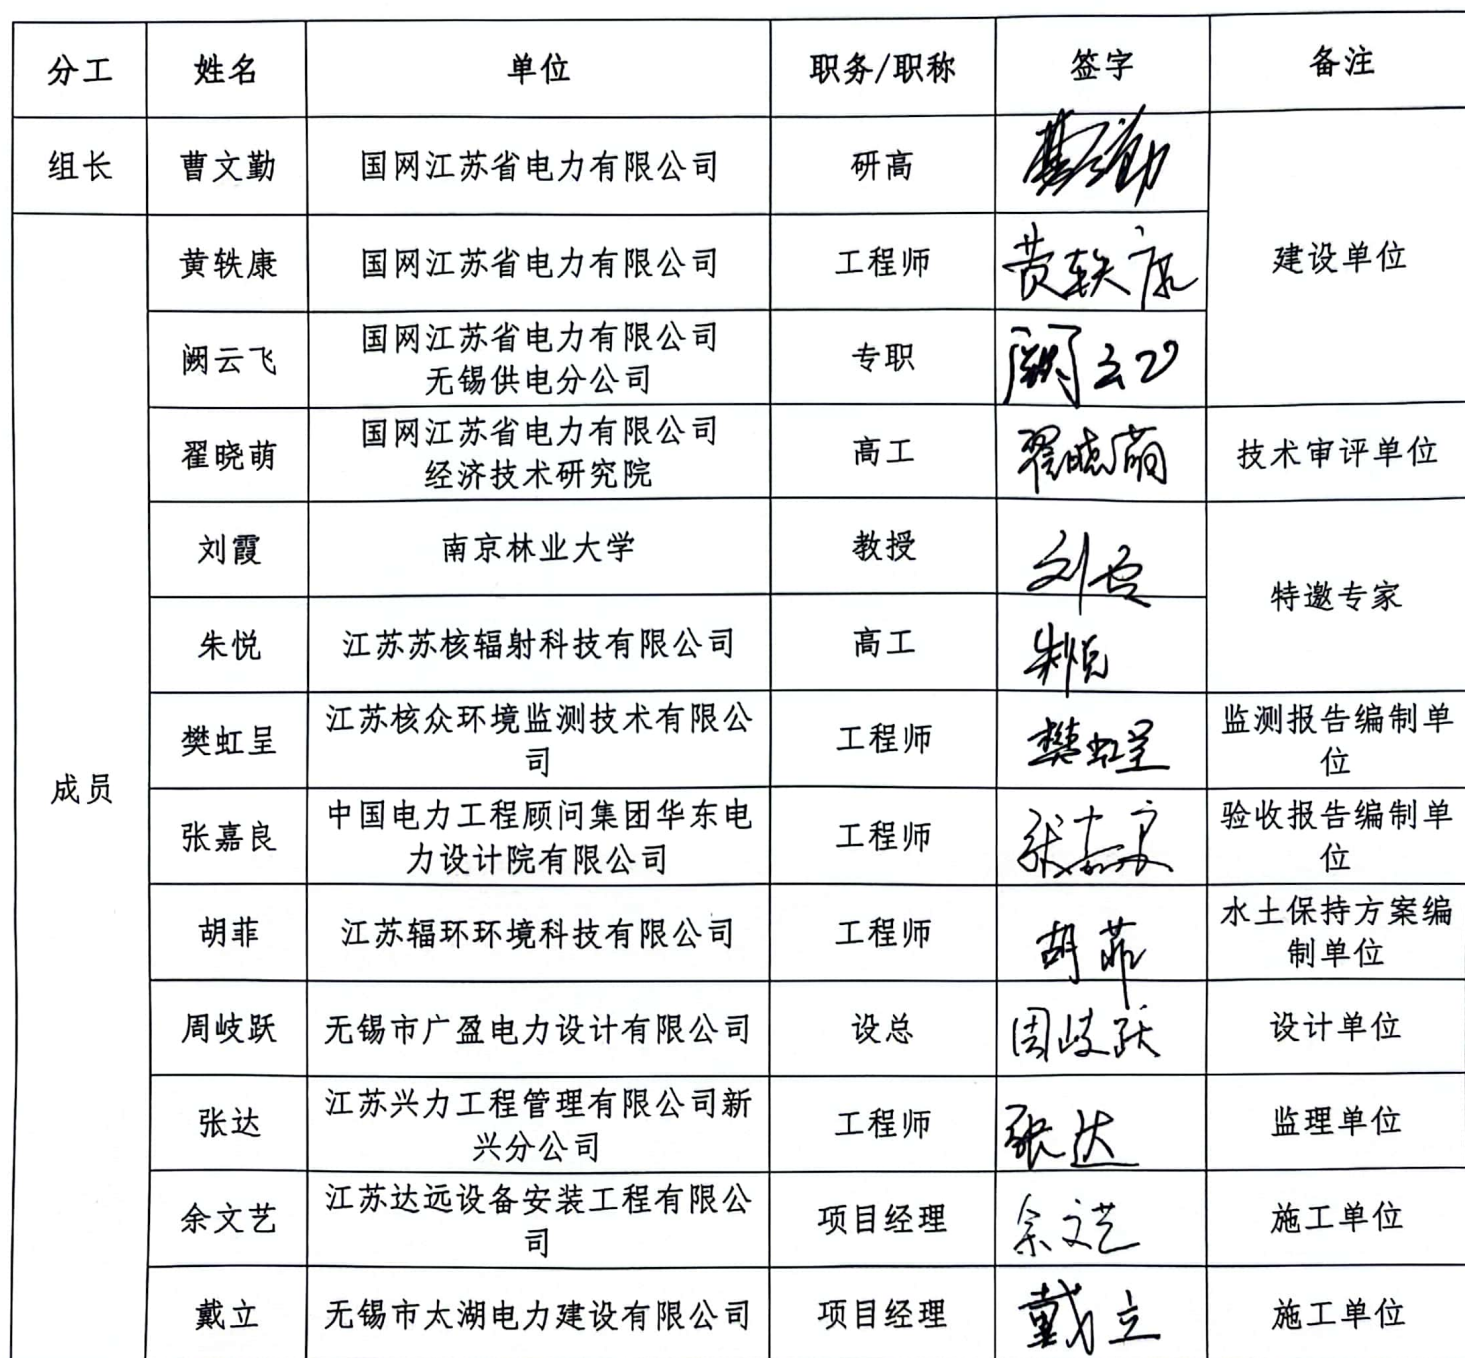 分工 姓名 单位 职务/职称 签字 备注
组长 曹文勤 国网江苏省电力有限公司 研高 曹文勤
建设单位
成员
黄轶康 国网江苏省电力有限公司 工程师 黄轶康
阙云飞 国网江苏省电力有限公司 专职 阙云飞
无锡供电分公司
翟晓萌 国网江苏省电力有限公司 高工 翟晓萌 技术审评单位
经济技术研究院
刘霞 南京林业大学 教授 刘霞
特邀专家
朱悦 江苏苏核辐射科技有限公司 高工 朱悦
樊虹呈 江苏核众环境监测技术有限公 工程师 樊虹呈 监测报告编制单
司 位
张嘉良 中国电力工程顾问集团华东电 工程师 张嘉良 验收报告编制单
力设计院有限公司 位
胡菲 江苏辐环环境科技有限公司 工程师 胡菲 水土保持方案编
制单位
周岐跃 无锡市广盈电力设计有限公司 设总 周岐跃 设计单位
张达 江苏兴力工程管理有限公司新 工程师 张达 监理单位
兴分公司
余文艺 江苏达远设备安装工程有限公 项目经理 余文艺 施工单位
司
戴立 无锡市太湖电力建设有限公司 项目经理 戴立 施工单位